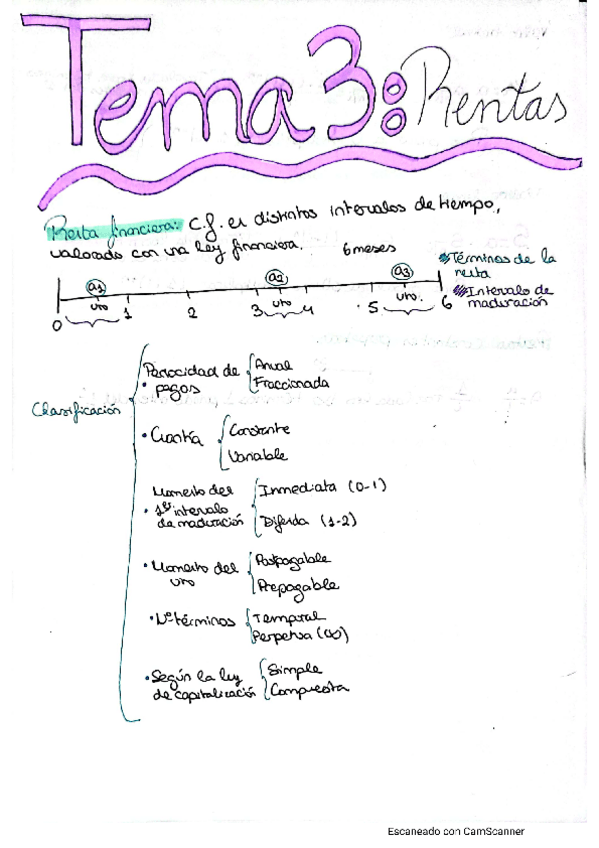 Tema 3: Rentas
Renta financiera: C.f. en distintos intervalos de tiempo,
valorado con una ley financiera.
6 meses
Términos de la
renta
Intervalo de
maduración
a1 a2 a3
vto vto vto.
0 1 2 3 4 5 6
Clasificación
Periocidad de
pagos
Anual
Fraccionada
Cuantía
Constante
Variable
Momento del
1er intervalo
de maduración
Inmediata (0-1)
Diferida (1-2)
Momento del
vto
Postpagable
Prepagable
Nº términos
Temporal
Perpetua (∞)
Según la ley
de capitalización
Simple
Compuesta
Escaneado con CamScanner